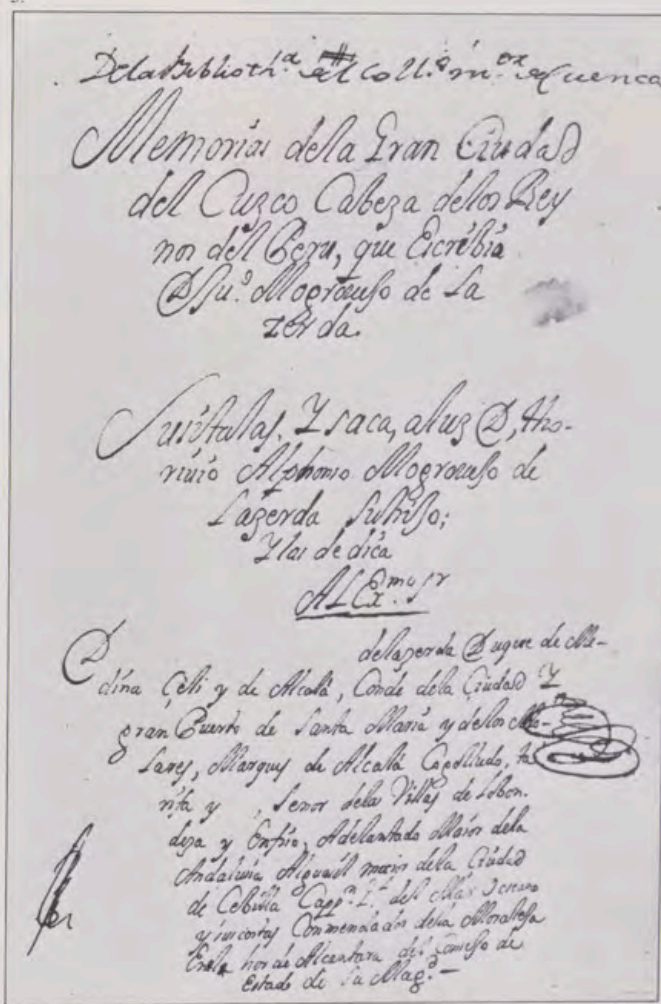 De la Biblioth.ª del Coll.º m.ºr de Cuenca
Memorias dela Gran Ciudad
del Cuzco Cabeza delos Rey
nos del Peru, que Escrebia
D Ju.º Mogrouejo de La
zerda.
Juntalas. Y saca, a luz D, tho-
riuio Alphonso Mogrouejo de
Lazerda su hijo;
Y las de dica
AL Ex.mo Sr
D delazerda Duque de Me-
dina Çeli y de Alcalá, Conde dela Ciudad Y
gran Puerto de Santa Maria y delos Mo-
lares, Marques de Alcalá Cogolludo, ta
rifa y , Senor delas Villas de Lobon.
y Adelantado Maior dela
Andaluzia Alguasil maior dela Ciudad
de Cebilla Capp.n del Mar Oceano
y sus costas Commendador dela Moraleja
En la hor de Alcantara del Consejo de
Estado de Su Mag.d —